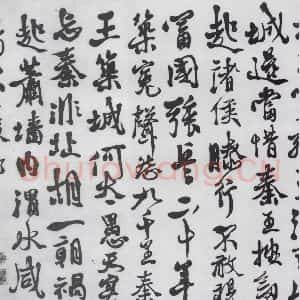 當惜秦王按劍
起諸侯膝行不敢視
富國強兵二十年
築冤九千里秦
王築城何太愚天實
亡秦非北胡一朝禍
起蕭墻內渭水咸
shufawang.cn